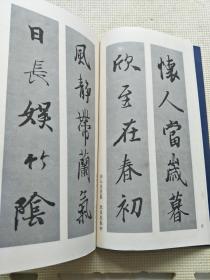 懷人當歲暮
欣至在春初
風靜帶蘭氣
日長娛竹陰